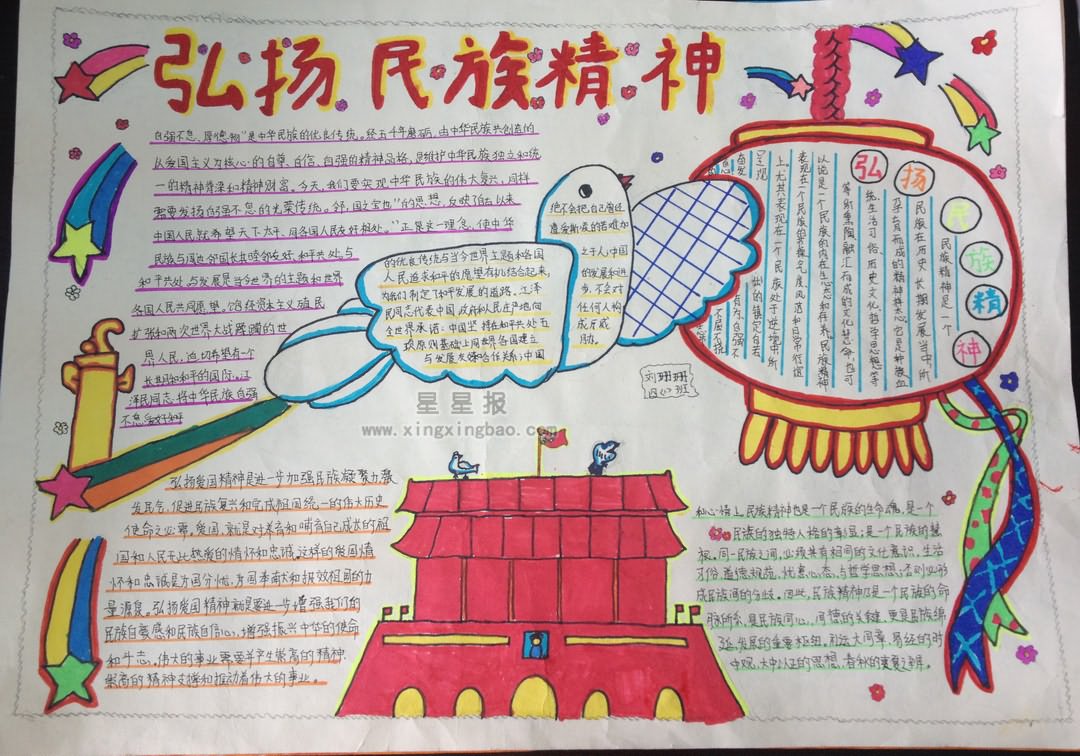 弘扬民族精神
自强不息、厚德载物"是中华民族的优良传统。经五千年磨砺，由中华民族共创造的
以爱国主义为核心的自尊、自信、自强的精神品格，是维护中华民族独立和统
一的精神脊梁和精神财富。今天，我们要实现中华民族的伟大复兴，同样
需要发扬自强不息的光荣传统。邻，国之宝也"的思想，反映了自古以来
中国人民就希望天下太平、同各国人民友好相处。"正是这一理念，使中华
民族与周边邻国长期睦邻友好、和平共处，与
和平共处，与发展是当今世界的主题和世界
各国人民共同愿望。饱经资本主义殖民
扩张和两次世界大战蹂躏的世
界人民，迫切希望有一个
长期和平的国际，江
泽民同志将中华民族自强
不息
的优良传统与当今世界主题和各国
人民追求和平的愿望有机结合起来，
为我们制定了和平发展的道路。江泽
民同志代表中国政府和人民庄严地向
全世界承诺：中国坚持在和平共处五
项原则基础上同世界各国建立
与发展友好合作关系；中国
绝不会把自己曾经
遭受斯凌的苦难加
之于人；中国
的发展和进
步，不会对
任何人构
成斤威
胁。
弘扬民族精神
民族精神是一个
民族在历史长期发展当中，所
孕育而成的精神样态。它是种族血
统、生活习俗、历史文化、哲学思想等
等所熏陶、融汇而成的文化慧命，也可
以说是一个民族的内在心态和存养。民族精神
表现在一个民族的节操、气度、风范和日常行谊
上。尤其表现在一个民族处于逆境中所
呈现
出的镇定自若、
有为、自强不
刘珊珊
四(2)班
星星报
www.xingxingbao.com
弘扬爱国精神是进一步加强民族凝聚力激
发民气，促进民族复兴和完成祖国统一的伟大历史
使命之必需。爱国，就是对养育和哺育自己成长的祖
国和人民无比热爱的情怀和忠诚。这样的爱国情
怀和忠诚是为国分忧、为国奉献和报效祖国的力
量源泉。弘扬爱国精神就是要进一步增强我们的
民族自豪感和民族自信心，增强振兴中华的使命
和斗志。伟大的事业需要并产生崇高的精神，
崇高的精神支撑和推动着伟大的事业。
和心情上。民族精神也是一个民族的生命魂，是一个
民族的独特人格的彰显；是一个民族的慧
根。同一民族之间，必须具有相同的文化意识、生活
习俗、道德规范、忧患心态、与哲学思想；否则必形
成民族间的分歧。因此，民族精神乃是一个民族的命
脉所系，是民族同心、同德的关键，更是民族绵
延、发展的重要枢纽。礼运大同章，易经的时
中观，大中以正的思想，春秋的责夏之辨。